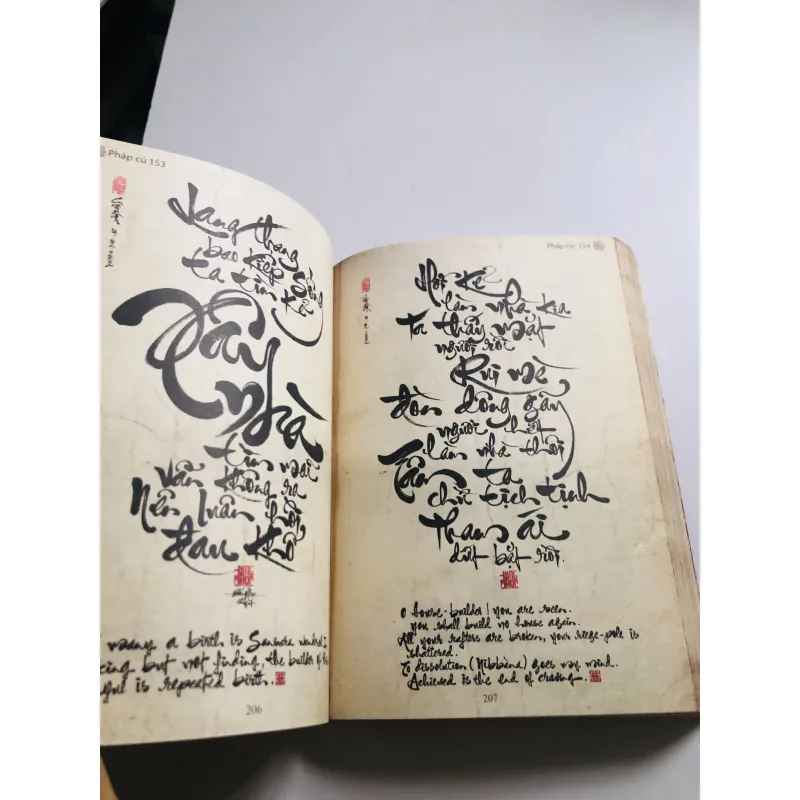 Pháp cú 153
Lang thang
bao kiếp sống
ta tìm kẻ
Xây
nhà
tìm mãi
vẫn không ra
Nên luân hồi
đau khổ
many a birth is Samsara wandered
but not finding, the builder of
is repeated birth.
206
Pháp cú 154
Hỡi kẻ
làm nhà kia
Ta thấy mặt
ngươi rồi
Rui mè
đòn dông gãy
ngươi hết
làm nhà thôi
Tâm ta
chừ tịch tịnh
tham ái
dứt bặt rồi.
O house-builder! you are seen.
you shall build no house again.
All your rafters are broken, your ridge-pole is
shattered.
To dissolution (Nibbàna) goes my mind.
Achieved is the end of craving.
207